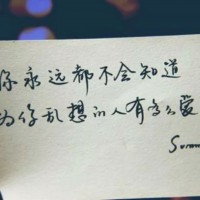 你永远都不会知道
为你乱想的人有多么爱